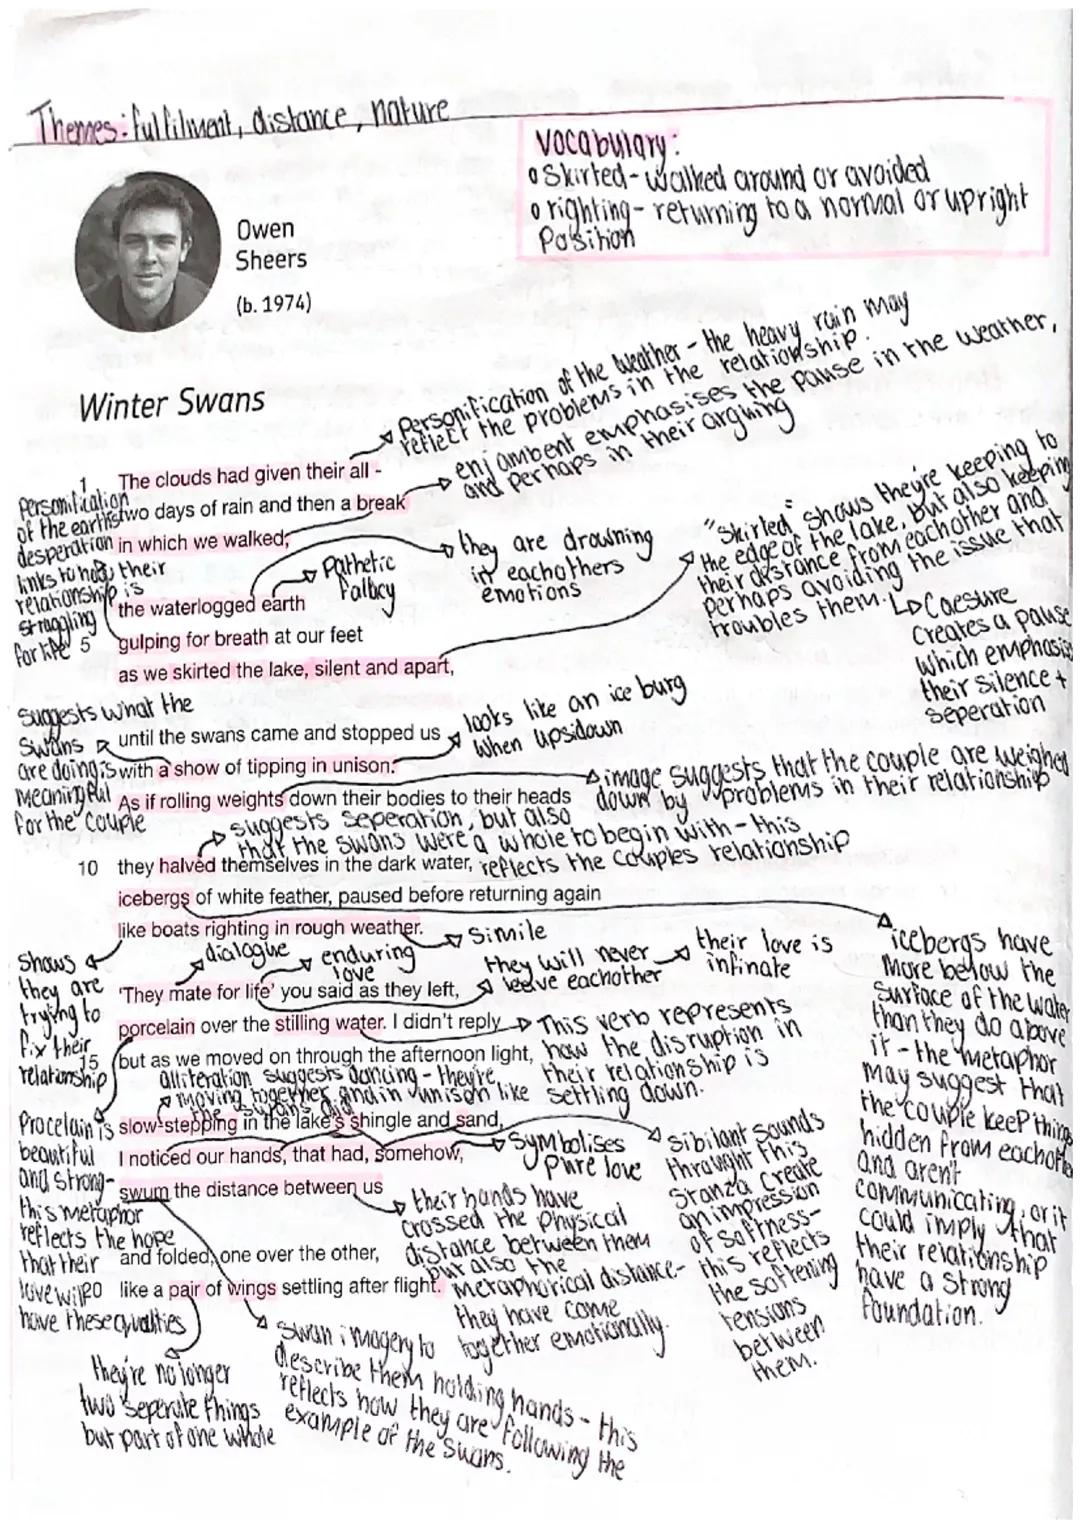 Themes: fulfilment, distance, nature
Vocabulary:
Skirted - walked around or avoided
righting - returning to a normal or upright
Position
Owen
Sheers
(b. 1974)
Winter Swans
Personification of the weather - the heavy rain may
reflect the problems in the relationship.
enjambent emphasises the pause in the weather,
and perhaps in their arguing
1 The clouds had given their all -
two days of rain and then a break
in which we walked;
Personification
of the earths
desperation
links to how their
relationship is
struggling
for life
Pathetic
fallacy
they are drowning
in eachothers
emotions
"Skirted" shows they're keeping to
the edge of the lake, but also keeping
their distance from eachother and
perhaps avoiding the issue that
troubles them.
Caesure
Creates a pause
which emphasis
their silence +
seperation
the waterlogged earth
5 gulping for breath at our feet
as we skirted the lake, silent and apart,
Suggests what the
Swans
are doing is
meaningful
for the couple
until the swans came and stopped us
with a show of tipping in unison.
looks like an ice burg
when upsidown
As if rolling weights down their bodies to their heads
image suggests that the couple are weighed
down by problems in their relationship
suggests seperation, but also
that the swans were a whole to begin with - this
reflects the couples relationship
10 they halved themselves in the dark water,
icebergs of white feather, paused before returning again
like boats righting in rough weather.
Simile
Shows
they are
trying to
fix their
relationship
dialogue
enduring
love
they will never
leave eachother
their love is
infinate
'They mate for life' you said as they left,
porcelain over the stilling water. I didn't reply
15 but as we moved on through the afternoon light,
This verb represents
how the disruption in
their relationship is
settling down.
icebergs have
More below the
surface of the water
than they do above
it - the metaphor
may suggest that
the couple keep things
hidden from eachother
and aren't
communicating, or it
could imply that
their relationship
have a strong
foundation.
alliteration suggests dancing - they're
moving together and in unison like
the swans did
slow-stepping in the lake's shingle and sand,
I noticed our hands, that had, somehow,
swum the distance between us
Procelain is
beautiful
and strong -
this metaphor
reflects the hope
that their
love will
have these qualities
Symbolises
pure love
Sibilant sounds
throught this
Stanza create
an impression
of softness -
this reflects
the softening
tensions
between
them.
their hands have
crossed the physical
distance between them
but also the
metaphorical distance -
they have come
together emotionally.
and folded, one over the other,
20 like a pair of wings settling after flight.
they're no longer
two seperate things
but part of one whole
Swan imagery to
describe them holding hands - this
reflects how they are following the
example of the Swans.